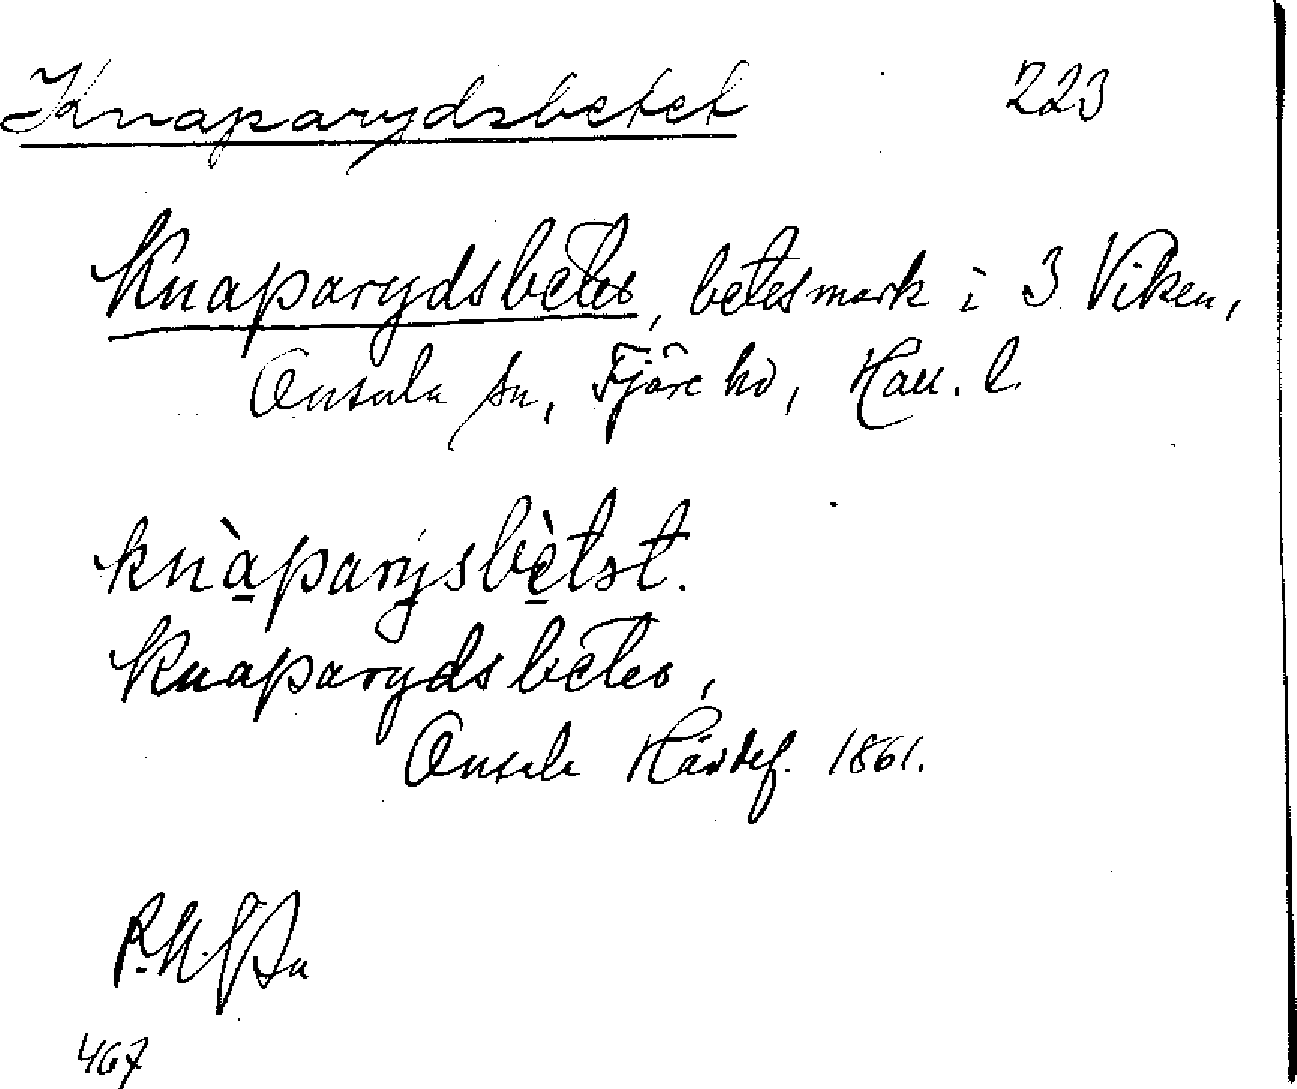 Knaparydsbetet 223
Knaparydsbetes, betesmark i 3 Viken,
Onsala sn, Fjäre hd, Hall. l.
knàparýsbètət.
Knaparydsbetes,
Onsala Hävdef. 1861.
467